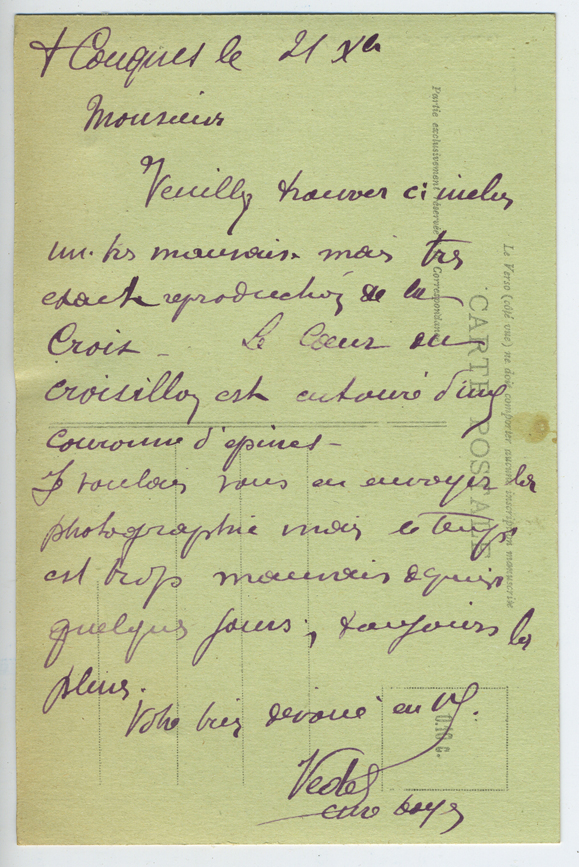 + Conques le 21 Xbre
Monsieur
Veuillez trouver ci inclus
une très mauvaise mais très
exacte reproduction de la
Croix - Le Cœur du
croisillon est entouré d'une
couronne d'épines -
Je voulais vous en envoyer la
photographie mais le temps
est trop mauvais depuis
quelques jours ; toujours la
pluie.
Votre bien dévoué en
Vedel
curé doyen
Partie exclusivement réservée à la Correspondance
CARTE POSTALE
Le Verso (côté vue) ne doit comporter aucune inscription manuscrite
0.10 c.